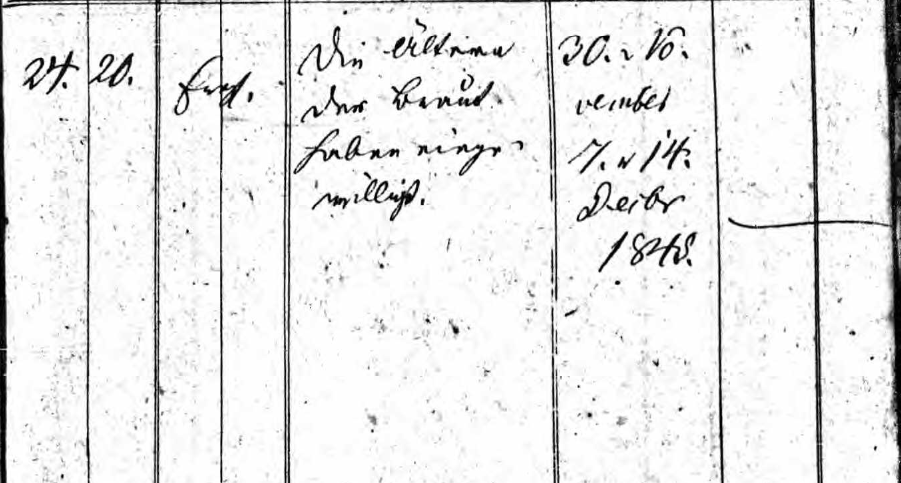 24. 20. Erst.
Die Ältern
der Braut
haben einge-
willigt.
30. No-
vember
7. u 14.
Decbr
1845.